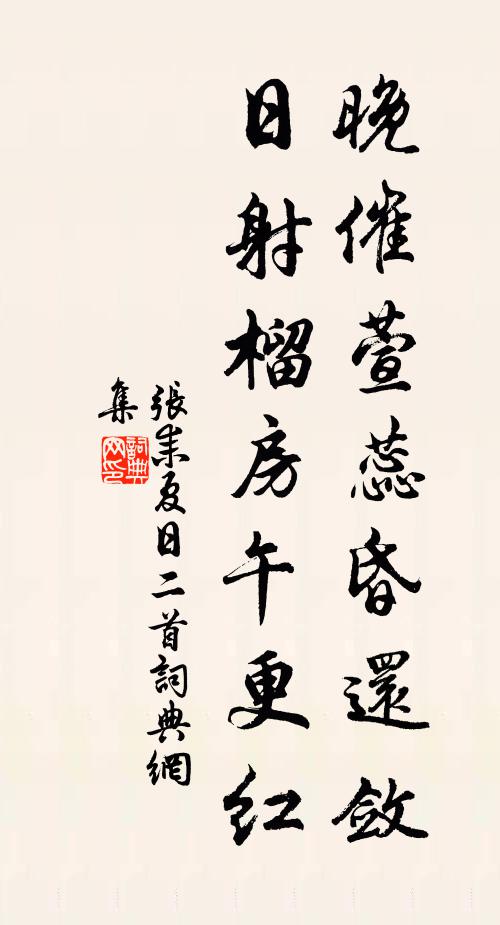 晚催萱蕊昏還斂
日射榴房午更紅
張耒夏日二首詞典網
集
詞典
网印